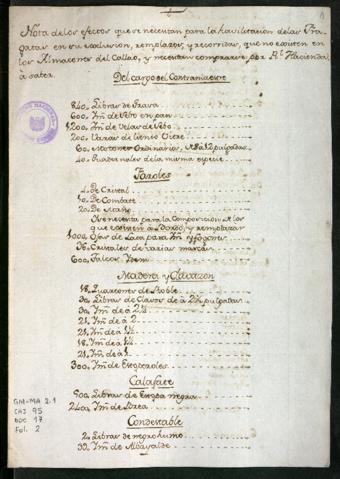 Nota de los efectos que se necesitan para la havilitacion de las Fra-
gatas en su exclusion, remplazos, y recorridas, que no existen en
los Almacenes del Callao, y necesitan comprarse por Rl. Hacienda
á saber.
Del cargo del Contramaestre
840. Libras de Grasa
600. Im. de Sebo en pan
1200. Im. de Velas de Sebo
200. Varas de lienzo
60. Motones Ordinarios pulgadas
40. Quadernales de la misma especie
Faroles
4. de Cristal
40. de Combate
20. De
Se necesita para la Composicion de los
que existen á Bordo, y remplazar
1000. Ojas de Lata para Im.
36. Cristales de varias marcas
600. Talcos Idem
Madera y Clavazon
18. Quartones de Roble
30. Libras de Clavos de á 2¾ pulgadas
30. Im. de á 2½
21. Im. de á 2
21. Im. de á 1¾
18. Im. de á 1½
21. Im. de á 1
300. Im. de Estoperoles
Calafate
500. Libras de Estopa negra
240. Im. de Brea
Condestable
2. Libras de negro humo
30. Im. de Albayalde
GM-MA 2.1
CAJ 95
DOC 17
Fol. 2